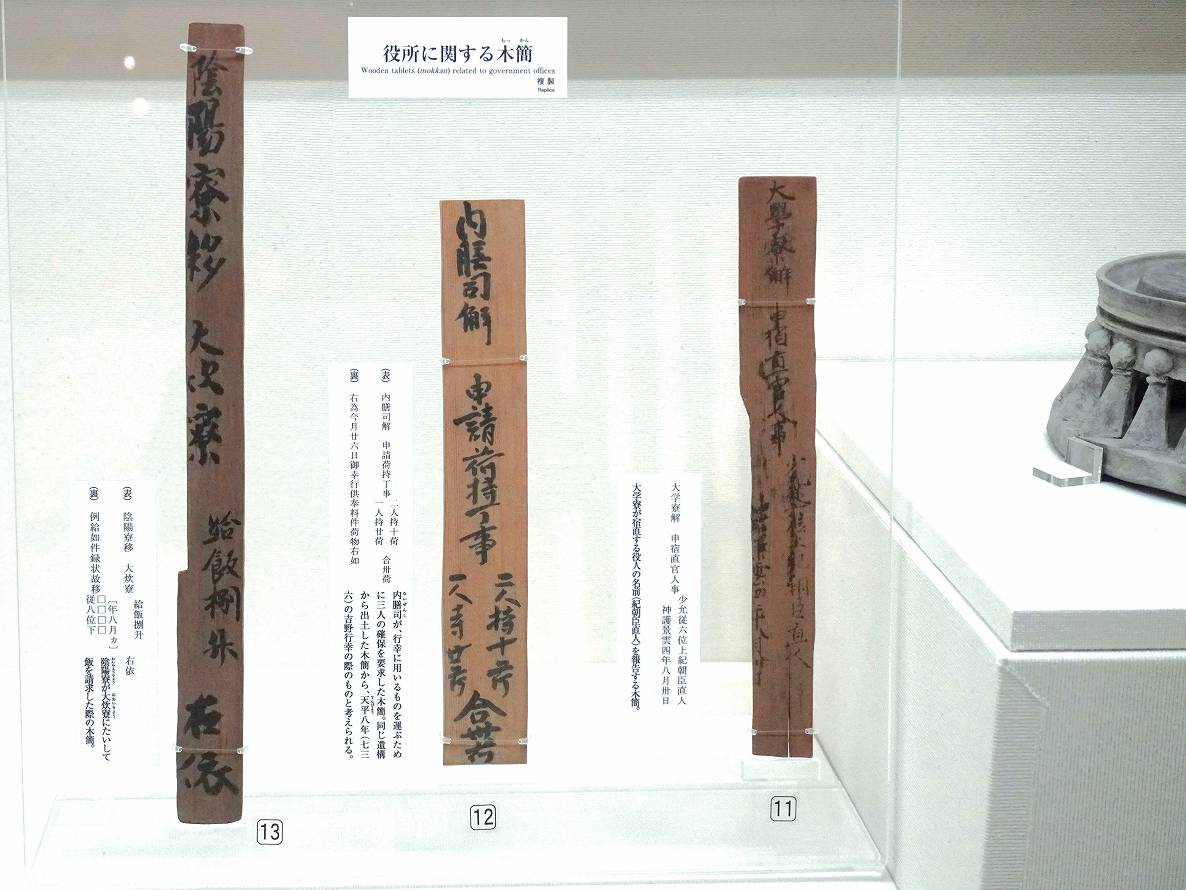 役所に関する木簡
もっ かん
Wooden tablets (mokkan) related to government offices
複製
Replica
大學寮解
申宿直官人事
大学寮解 申宿直官人事
少允従六位上紀朝臣直人
神護景雲四年八月卅日
大学寮が宿直する役人の名前(紀朝臣直人)を報告する木簡。
11
内膳司解
申請荷持丁事
二人持十荷
一人持廿荷
合卅荷
(表) 内膳司解 申請荷持丁事
二人持十荷
一人持廿荷
合卅荷
(裏) 右為今月廿六日御幸行供奉料件荷物右如
内膳司が、行幸に用いるものを運ぶため
に三人の確保を要求した木簡。同じ遺構
から出土した木簡から、天平八年(七三
六)の吉野行幸の際のものと考えられる。
12
陰陽寮移 大炊寮
給飯捌升
右依
(表) 陰陽寮移 大炊寮 給飯捌升 右依
(裏) 例給如件録状故移
〔年八月ヵ〕
□□□
従八位下
陰陽寮が大炊寮にたいして
飯を請求した際の木簡。
13